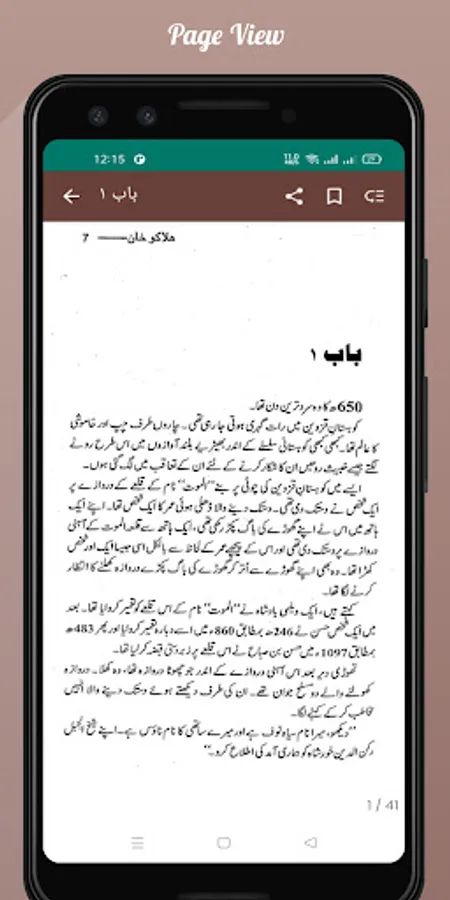 Page View
12:15
باب ۱
ھلاکو خان —— 7
باب ۱
650ھ کا وہ سرد ترین دن تھا۔
کوہستان قزوین میں رات گہری ہوتی جا رہی تھی۔ چاروں طرف چپ اور خاموشی
کا عالم تھا۔ کبھی کبھی کوہستانی سلسلے کے اندر بھیڑیے بلند آوازوں میں اس طرح رونے
لگتے جیسے خبیث روحیں ان کا شکار کرنے کے لئے ان کے تعاقب میں لگ گئی ہوں۔
ایسے میں کوہستان قزوین کی چوٹی پر بنے ”الموت“ نام کے قلعے کے دروازے پر
ایک شخص نے دستک دی تھی۔ دستک دینے والا ڈھلی ہوئی عمر کا ایک شخص تھا۔ اپنے ایک
ہاتھ میں اس نے اپنے گھوڑے کی باگ پکڑ رکھی تھی، ایک ہاتھ سے قلعہ الموت کے آہنی
دروازے پر دستک دی تھی اور اس کے پیچھے عمر کے لحاظ سے بالکل اسی جیسا ایک اور شخص
کھڑا تھا۔ وہ بھی اپنے گھوڑے سے اُتر کر گھوڑے کی باگ پکڑے دروازہ کھلنے کا انتظار
کرنے لگا تھا۔
کہتے ہیں، ایک دیلمی بادشاہ نے ”الموت“ نام کے اس قلعے کو تعمیر کروایا تھا۔ بعد
میں ایک شخص حسن نے 246ھ بمطابق 860ء میں اسے دوبارہ تعمیر کروایا اور پھر 483ھ
بمطابق 1097ء میں حسن بن صباح نے اس قلعے پر زبردستی قبضہ کر لیا تھا۔
تھوڑی دیر بعد اس آہنی دروازے کے اندر جو چھوٹا دروازہ تھا، وہ کھلا۔ دروازہ
کھولنے والے دو مسلح جوان تھے۔ ان کی طرف دیکھتے ہوئے دستک دینے والا انہیں
مخاطب کر کے کہنے لگا۔
”دیکھو، میرا نام ہے اور میرے ساتھی کا نام ہے۔ اپنے شیخ الجبل
رکن الدین خور شاہ کو ہماری آمد کی اطلاع کرو۔“
1 / 41